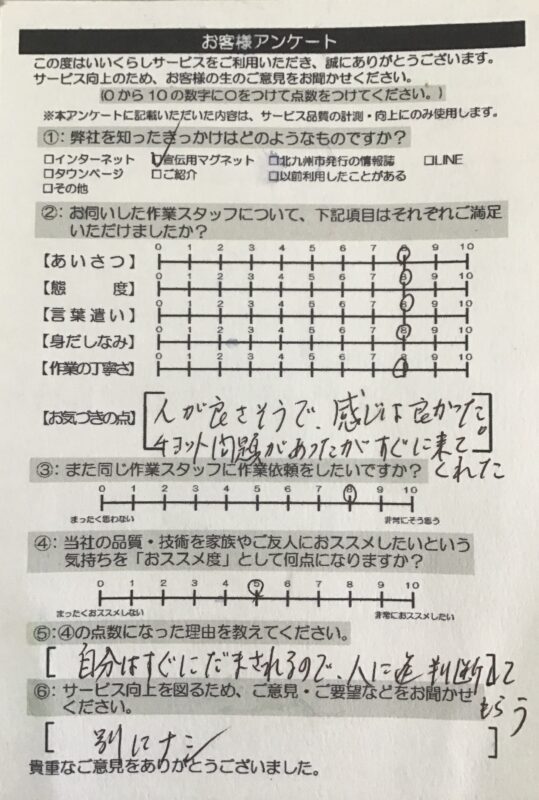 お客様アンケート
この度はいいくらしサービスをご利用いただき、誠にありがとうございます。
サービス向上のため、お客様の生のご意見をお聞かせください。
(0から10の数字に○をつけて点数をつけてください。)
※本アンケートに記載いただいた内容は、サービス品質の計測・向上にのみ使用します。
①：弊社を知ったきっかけはどのようなものですか？
□インターネット □宣伝用マグネット □北九州市発行の情報誌 □LINE
□タウンページ □ご紹介 □以前利用したことがある
□その他
②：お伺いした作業スタッフについて、下記項目はそれぞれご満足
いただけましたか？
0 1 2 3 4 5 6 7 8 9 10
【あいさつ】
0 1 2 3 4 5 6 7 8 9 10
【態度】
0 1 2 3 4 5 6 7 8 9 10
【言葉遣い】
0 1 2 3 4 5 6 7 8 9 10
【身だしなみ】
0 1 2 3 4 5 6 7 8 9 10
【作業の丁寧さ】
【お気づきの点】
人が良さそうで、感じは良かった。
チョット問題があったがすぐに来て
くれた
③：また同じ作業スタッフに作業依頼をしたいですか？
0 1 2 3 4 5 6 7 8 9 10
まったく思わない 非常にそう思う
④：当社の品質・技術を家族やご友人におススメしたいという
気持ちを「おススメ度」として何点になりますか？
0 1 2 3 4 5 6 7 8 9 10
まったくおススメしない 非常におススメしたい
⑤：④の点数になった理由を教えてください。
[自分はすぐにだまされるので、人に 判断]して
もらう
⑥：サービス向上を図るため、ご意見・ご要望などをお聞かせ
ください。
[別にナシ]
貴重なご意見をありがとうございました。